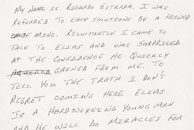 MY NAME IS RICARDO ESTRADA. I WAS
REFERRED TO EASY SOLUTIONS BY A FRIEND
OF MINE. RELUCTANTLY I CAME TO
TALK TO ELIAS AND WAS SURPRISED
AT THE CONFIDENCE HE QUICKLY
GAINED FROM ME. TO
TELL YOU THE TRUTH I DON'T
REGRET COMING HERE. ELIAS
IS A HARDWORKING YOUNG MAN
AND HE WILL DO MIRACLES FOR